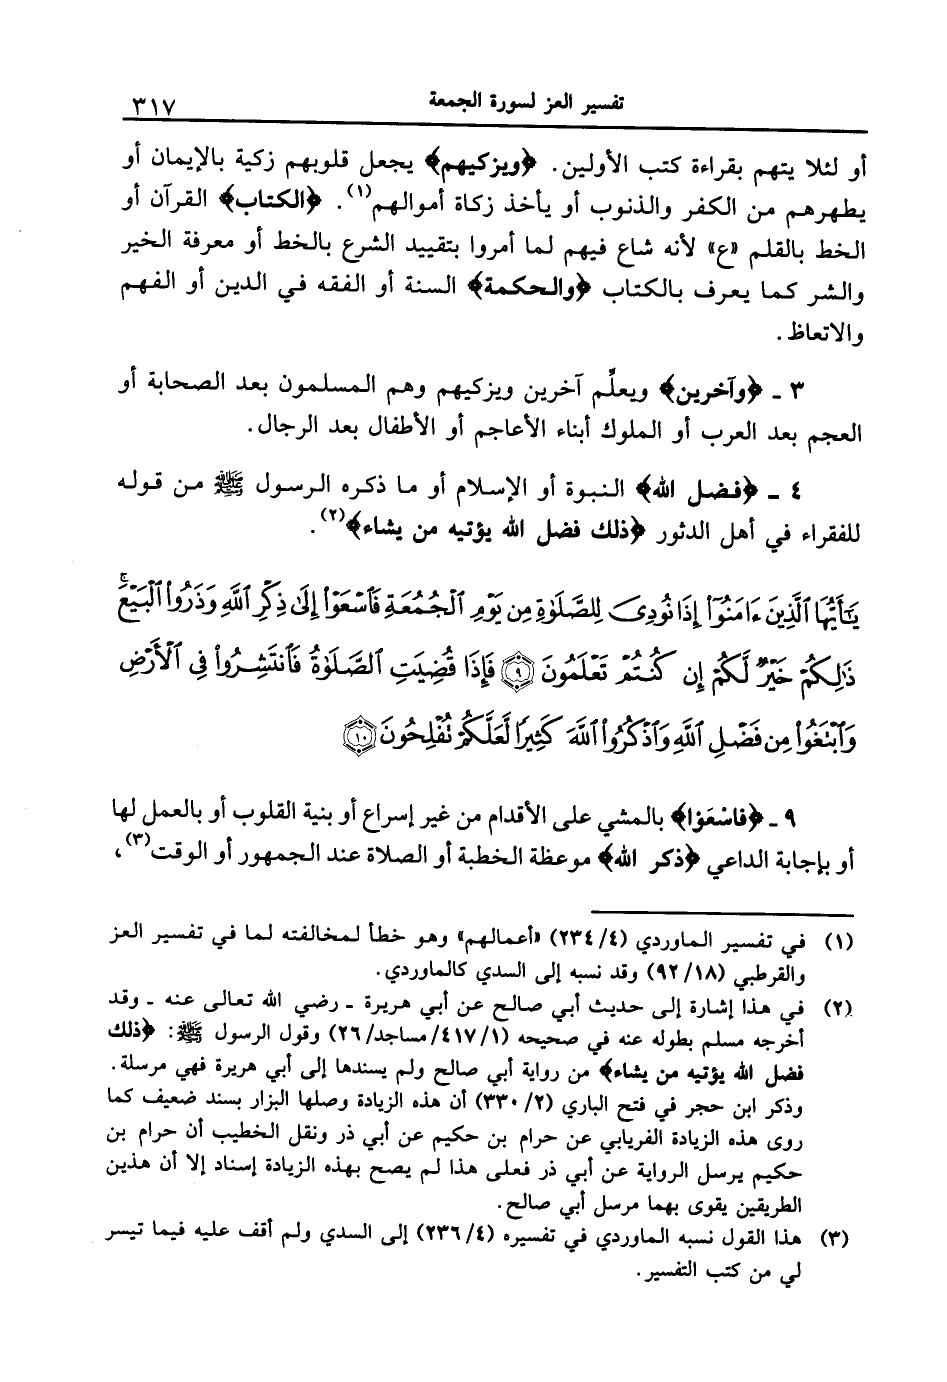 تفسير العز لسورة الجمعة ٣١٧
أو لئلا يتهم بقراءة كتب الأولين. ﴿ويزكيهم﴾ يجعل قلوبهم زكية بالإيمان أو
يطهرهم من الكفر والذنوب أو يأخذ زكاة أموالهم(١). ﴿الكتاب﴾ القرآن أو
الخط بالقلم «ع» لأنه شاع فيهم لما أمروا بتقييد الشرع بالخط أو معرفة الخير
والشر كما يعرف بالكتاب ﴿والحكمة﴾ السنة أو الفقه في الدين أو الفهم
والاتعاظ.
٣ ـ ﴿وآخرين﴾ ويعلِّم آخرين ويزكيهم وهم المسلمون بعد الصحابة أو
العجم بعد العرب أو الملوك أبناء الأعاجم أو الأطفال بعد الرجال.
٤ ـ ﴿فضل الله﴾ النبوة أو الإسلام أو ما ذكره الرسول ﷺ من قوله
للفقراء في أهل الدثور ﴿ذلك فضل الله يؤتيه من يشاء﴾(٢).
يَٰٓأَيُّهَا ٱلَّذِينَ ءَامَنُوٓا۟ إِذَا نُودِىَ لِلصَّلَوٰةِ مِن يَوْمِ ٱلْجُمُعَةِ فَٱسْعَوْا۟ إِلَىٰ ذِكْرِ ٱللَّهِ وَذَرُوا۟ ٱلْبَيْعَ ۚ
ذَٰلِكُمْ خَيْرٌ لَّكُمْ إِن كُنتُمْ تَعْلَمُونَ ﴿٩﴾ فَإِذَا قُضِيَتِ ٱلصَّلَوٰةُ فَٱنتَشِرُوا۟ فِى ٱلْأَرْضِ
وَٱبْتَغُوا۟ مِن فَضْلِ ٱللَّهِ وَٱذْكُرُوا۟ ٱللَّهَ كَثِيرًا لَّعَلَّكُمْ تُفْلِحُونَ ﴿١٠﴾
٩ ـ ﴿فاسْعَوْا﴾ بالمشي على الأقدام من غير إسراع أو بنية القلوب أو بالعمل لها
أو بإجابة الداعي ﴿ذكر الله﴾ موعظة الخطبة أو الصلاة عند الجمهور أو الوقت(٣)،
(١) في تفسير الماوردي (٤/ ٢٣٤) «أعمالهم» وهو خطأ لمخالفته لما في تفسير العز
والقرطبي (١٨/ ٩٢) وقد نسبه إلى السدي كالماوردي.
(٢) في هذا إشارة إلى حديث أبي صالح عن أبي هريرة ـ رضي الله تعالى عنه ـ وقد
أخرجه مسلم بطوله عنه في صحيحه (١/ ٤١٧/ مساجد/ ٢٦) وقول الرسول ﷺ: ﴿ذلك
فضل الله يؤتيه من يشاء﴾ من رواية أبي صالح ولم يسندها إلى أبي هريرة فهي مرسلة.
وذكر ابن حجر في فتح الباري (٢/ ٣٣٠) أن هذه الزيادة وصلها البزار بسند ضعيف كما
روى هذه الزيادة الفريابي عن حرام بن حكيم عن أبي ذر ونقل الخطيب أن حرام بن
حكيم يرسل الرواية عن أبي ذر فعلى هذا لم يصح بهذه الزيادة إسناد إلا أن هذين
الطريقين يقوى بهما مرسل أبي صالح.
(٣) هذا القول نسبه الماوردي في تفسيره (٤/ ٢٣٦) إلى السدي ولم أقف عليه فيما تيسر
لي من كتب التفسير.